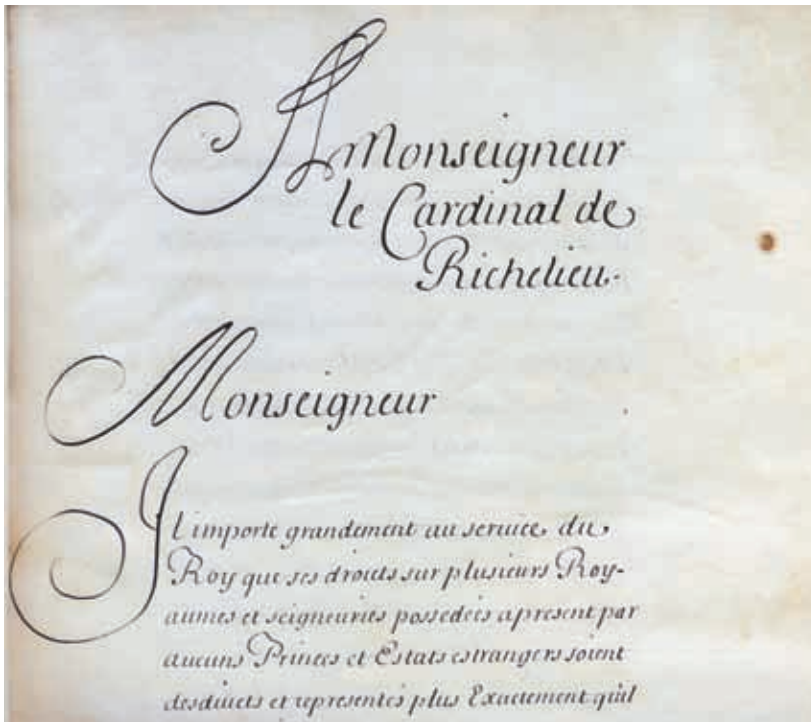 A Monseigneur
le Cardinal de
Richelieu.
Monseigneur
Il importe grandement au seruice du
Roy que ses droicts sur plusieurs Roy-
aumes et seigneuries possedées apresent par
aucuns Princes et Estats estrangers soient
desduicts et representés plus Exactement quil